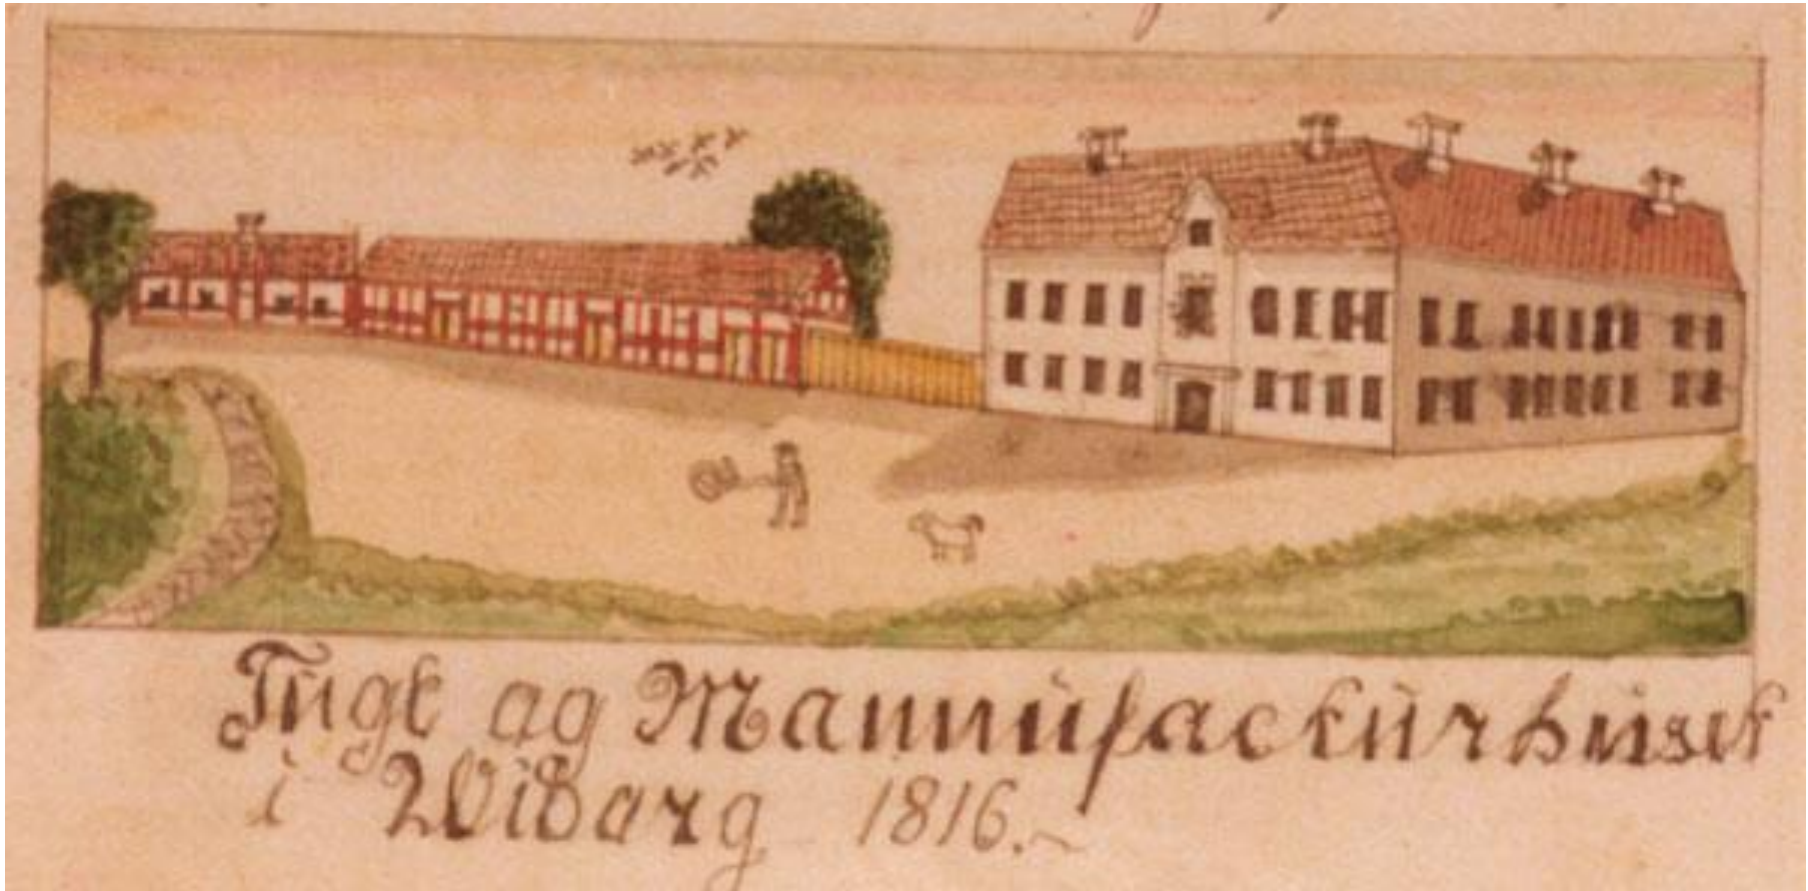 Tugt og Mannufackturhuset
i Wiborg 1816.